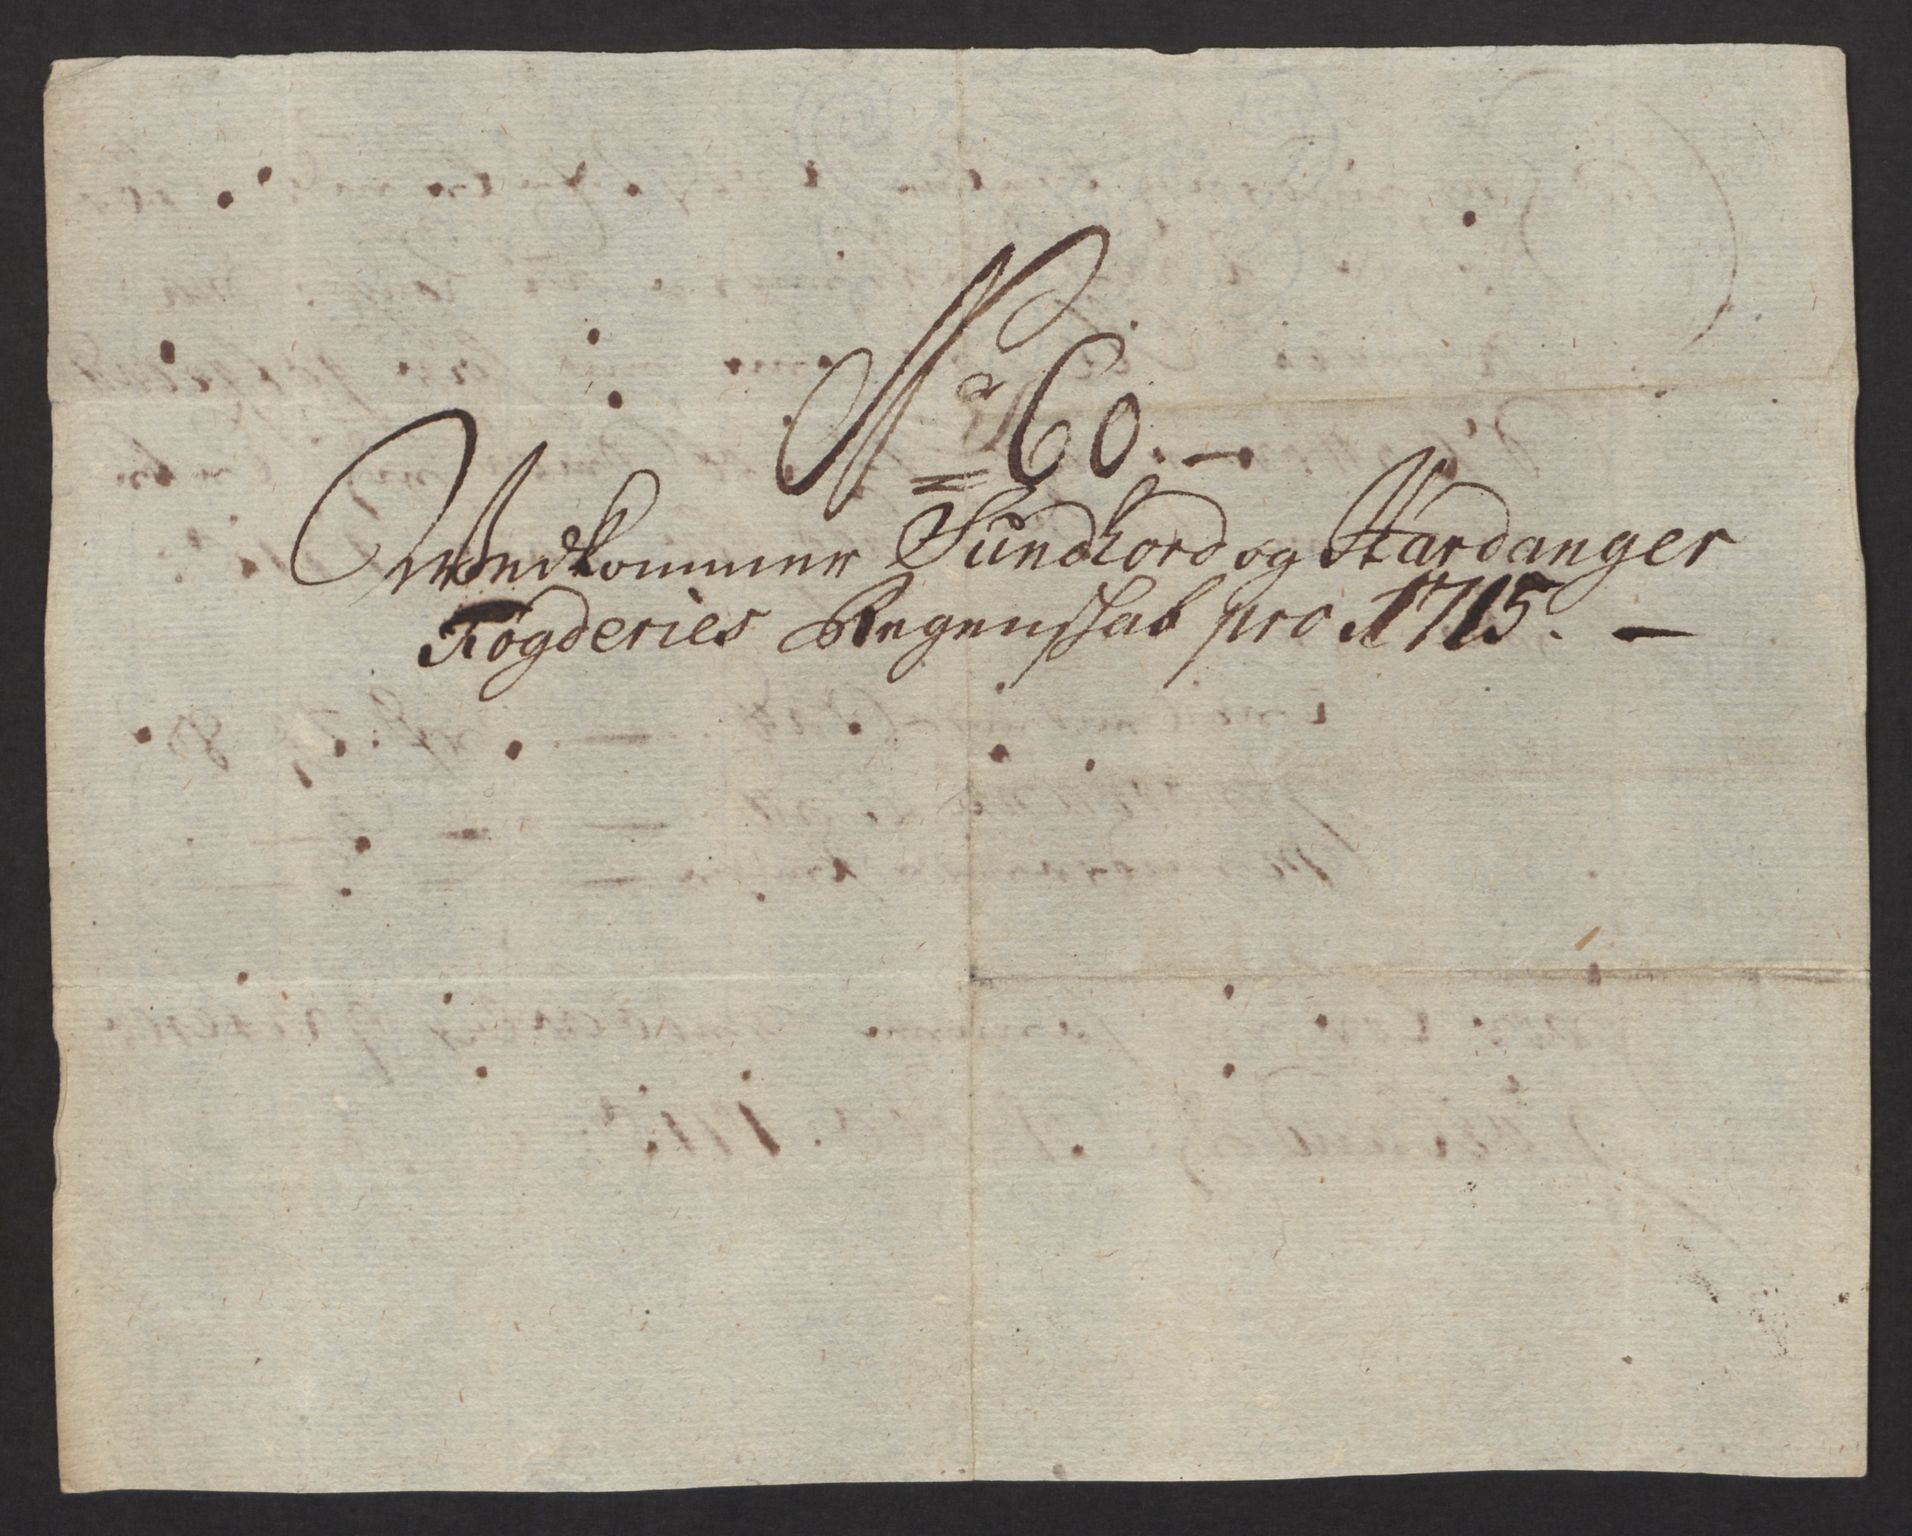 No 60. —
Wedkommer Sundhord og Hardanger
Fogderies Regenskab pro 1715. —